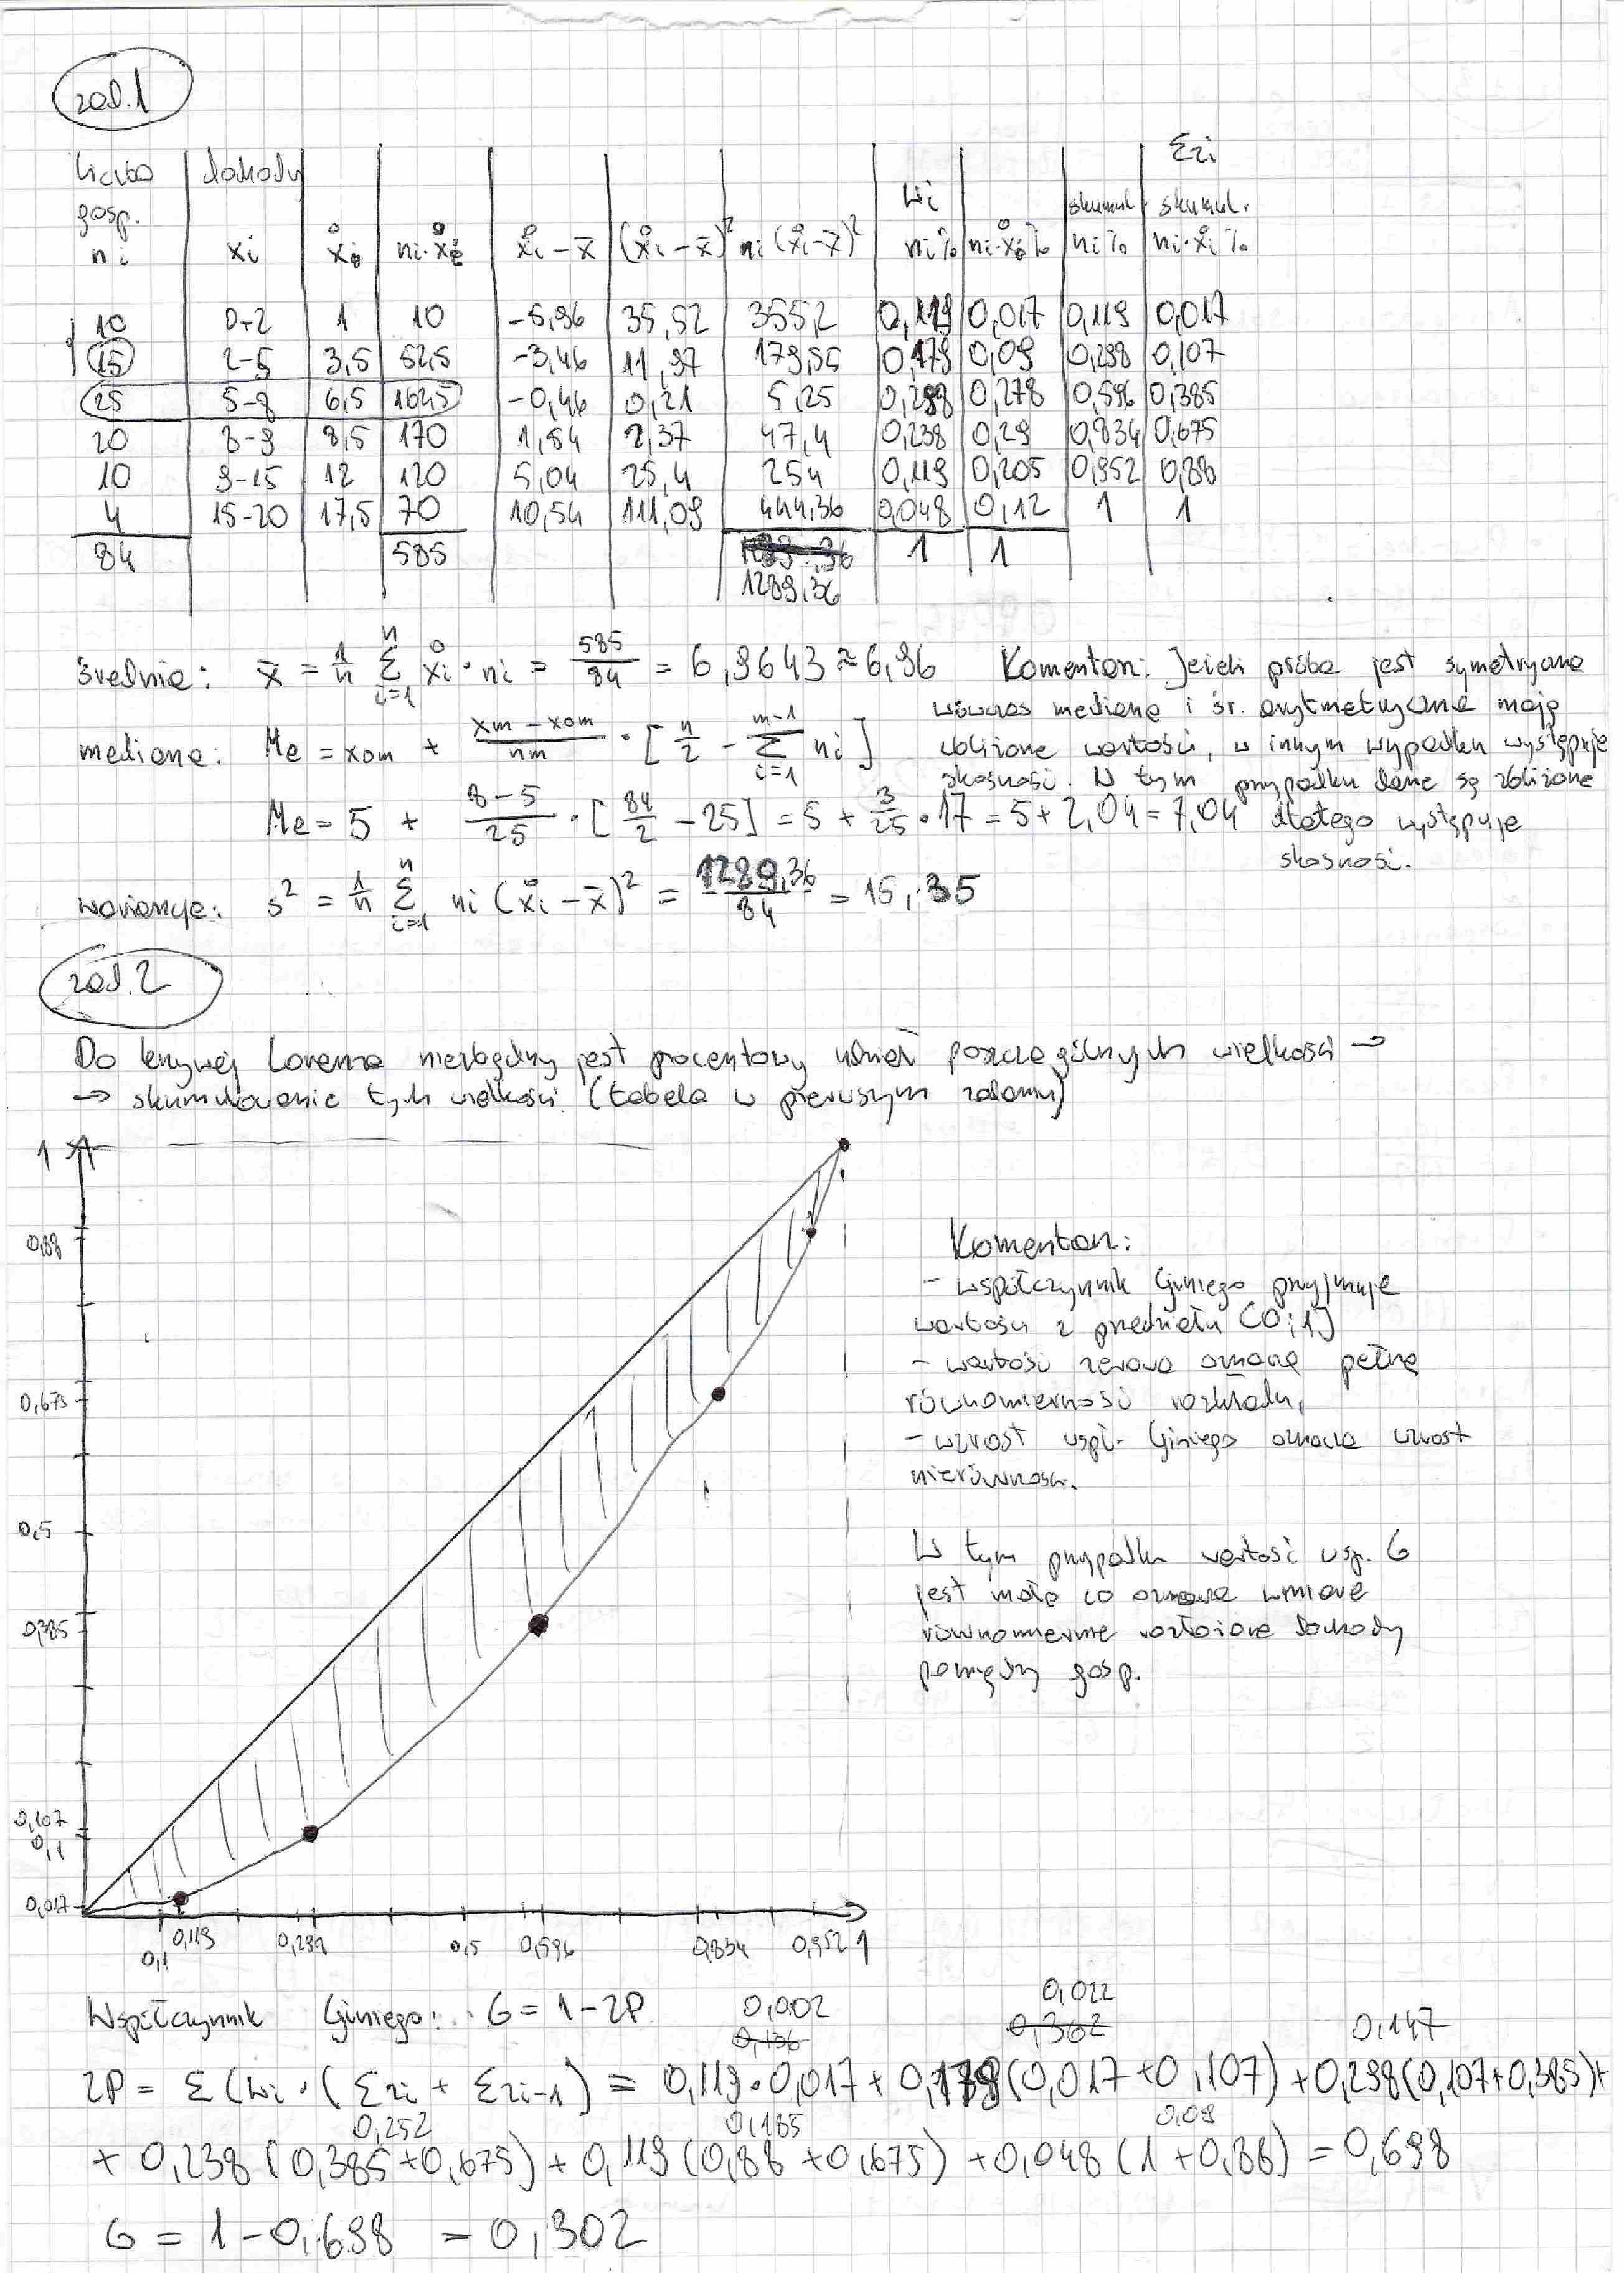 zad.1
liczba gosp. ni | dochody xi | x̊i | ni·x̊i | x̊i − x̄ | (x̊i − x̄)² | ni (x̊i − x̄)² | wi ni% | ni·x̊i% | skumul. ni% | Σzi skumul. ni·x̊i%
10 | 0-2 | 1 | 10 | -5,96 | 35,52 | 355,2 | 0,119 | 0,017 | 0,119 | 0,017
15 | 2-5 | 3,5 | 52,5 | -3,46 | 11,97 | 179,55 | 0,179 | 0,09 | 0,298 | 0,107
25 | 5-8 | 6,5 | 162,5 | -0,46 | 0,21 | 5,25 | 0,298 | 0,278 | 0,596 | 0,385
20 | 8-9 | 8,5 | 170 | 1,54 | 2,37 | 47,4 | 0,238 | 0,29 | 0,834 | 0,675
10 | 9-15 | 12 | 120 | 5,04 | 25,4 | 254 | 0,119 | 0,205 | 0,952 | 0,88
4 | 15-20 | 17,5 | 70 | 10,54 | 111,09 | 444,36 | 0,048 | 0,12 | 1 | 1
84 | 585 | 1 | 1
1289,36
średnia: x̄ = 1/n Σ(i=1..n) x̊i · ni = 585/84 = 6,9643 ≈ 6,96
mediana: Me = xom + (xm − xom)/nm · [n/2 − Σ(i=1..m-1) ni]
Me = 5 + (8−5)/25 · [84/2 − 25] = 5 + 3/25 · 17 = 5 + 2,04 = 7,04
wariancja: s² = 1/n Σ(i=1..n) ni (x̊i − x̄)² = 1289,36/84 = 15,35
Komentarz: Jeżeli próba jest symetryczna
wówczas mediana i śr. arytmetyczna mają
zbliżone wartości, w innym wypadku występuje
skośność. W tym przypadku dane są zbliżone
dlatego występuje
skośność.
zad.2
Do krzywej Lorenza niezbędny jest procentowy udział poszczególnych wielkości →
→ skumulowanie tych wielkości (tabela w pierwszym zadaniu)
1
0,88
0,675
0,5
0,385
0,107
0,1
0,017
0,1 0,119 0,298 0,5 0,596 0,834 0,952 1
Komentarz:
- współczynnik Giniego przyjmuje
wartości z przedziału [0;1]
- wartość zerowa oznacza pełną
równomierność rozkładu,
- wzrost wspł. Giniego oznacza wzrost
nierówności.
W tym przypadku wartość wsp. G
jest mała co oznacza w miarę
równomiernie rozłożone dochody
pomiędzy gosp.
Współczynnik Giniego: G = 1−2P
0,002 0,022 0,147
0,136 0,362
2P = Σ(wi · (Σzi + Σzi-1) = 0,119·0,017 + 0,179(0,017+0,107) + 0,298(0,107+0,385)+
0,252 0,185 0,09
+ 0,238 (0,385+0,675) + 0,119 (0,88 +0,675) +0,048 (1+0,88) = 0,698
G = 1 − 0,698 = 0,302